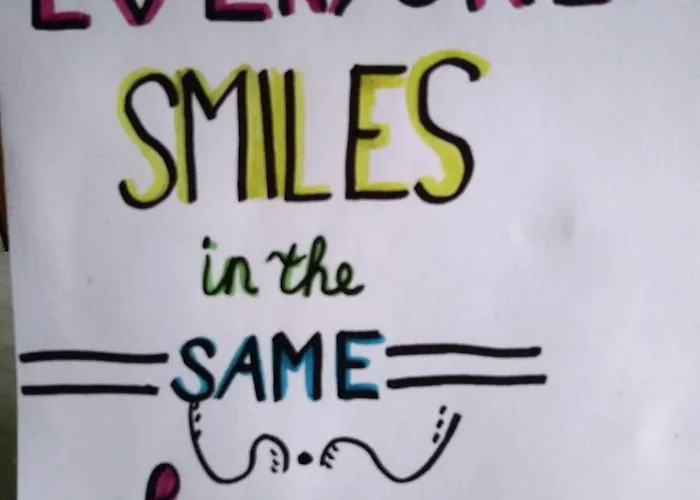 EVERYONE
SMILES
in the
SAME